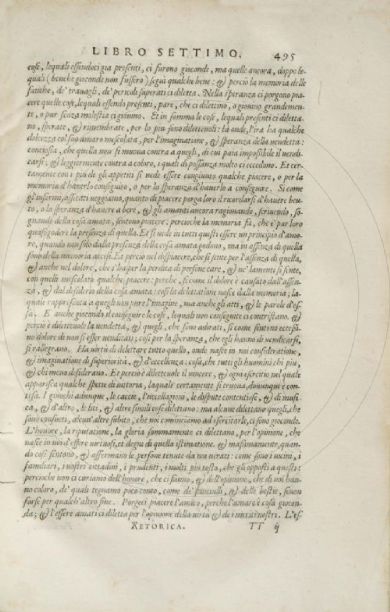 LIBRO SETTIMO. 495
cose, lequali essendoci gia presenti, ci furono gioconde, ma quelle ancora, doppo le
quali (benche gioconde non fussero) seguì qualche bene: & perciò la memoria delle
fatiche, de' travagli, de' pericoli superati ci diletta. Nella speranza ci porgono pia
cere quelle cose, lequali essendo presenti, pare, che ci dilettino, o giovino grandemen
te, o pur senza molestia ci giovino. Et in somma le cose, lequali presenti ci dilettano
no, sperate, & rimembrate, per lo più sono dilettevoli: la onde, l'ira ha qualche
dolcezza col suo amaro mescolata, per l'imaginatione, & speranza della vendetta:
conciosia, che
sarsi; & leggiermente contra a coloro, i quali di possanza molto ci eccedono. Et cer
tamente con i più de gli appetiti si vede essere congiunto qualche piacere, o per la
memoria d'haverlo conseguito, o per la speranza d'haverlo a conseguire. Si come
gl'infermi, assetati veggiamo, quanto di piacere porga loro il ricordarsi d'havere beu
to, o la speranza d'havere a bere, & gli amanti ancora ragionando, scrivendo,
della cosa amata, sentono piacere: percioche la memoria fa, che è par loro
quasi godere la presenza di quella. Et si vede in tutti questi essere un principio d'amo
re, quando non solo dalla presenza della cosa amata godono, ma in assenza di quella
sono della memoria accesi. Et perciò nel dispiacere, che si sente per l'assenza di quella,
& anche nel dolore, che s'ha per la perdita di persone care, & ne' lamenti si sente,
con quelli mescolato qualche piacere: perche, si come il dolore è causato dall'assen
za, & dal desiderio della cosa amata, così la dilettatione nasce dalla memoria, la
quale rappresenta a quegli non pure l'imagine, ma anche gli atti, & le parole d'es
sa. E anche gioconda il conseguire le cose, lequali non conseguite ci contristano. &
perciò è dilettevole la vendetta, & quegli, che sono adirati, si come sentono estre
mo dolore di non si esser vendicati; così per la speranza, che egli hanno di vendicarsi,
si rallegrano. Ha virtù di dilettare tutto quello, onde nasce in noi consideratione,
& imaginatione di superiorità, & d'eccellenza: cosa, che tutti gli huomini chi più,
& chi meno desiderano. Et perciò è dilettevole il vincere, & ogni esercitio nel quale
apparisca qualche spetie di vittoria, laquale certamente si truova, dovunque è con
tesa. I giuochi adunque, le caccie, l'uccellagioni, le dispute contentiose, & di musi
ca, & d'altro, le liti, & altre simili cose dilettano: ma alcune dilettano quegli, che
sono consueti, alcun'altre subito, che noi cominciamo ad esercitarle, ci sono gioconde.
L'honore, la riputatione, la gloria sommamente ci dilettano, per l'opinione, che
nasce in noi d'essere virtuosi, et degni di quella estimatione. & massimamente, quan
do cose sentono, & affermano le persone tenute da noi veraci: come sono i vicini, i
familiari, i nostri cittadini, i prudenti, i molti più tosto, che gli opposti a questi:
percioche non ci curiamo dell'honore, che ci fanno, & dell'opinione, che di noi han
no coloro, de' quali tegnamo poco conto, come de' fanciulli, & delle bestie, se non
forse per qualch'altro fine. Porgeci piacere l'amico, perche l'amare è cosa giocon
da; & l'essere amati ci diletta per l'opinione della virtù & de i meriti nostri. L'es-
RETORICA. TT ij